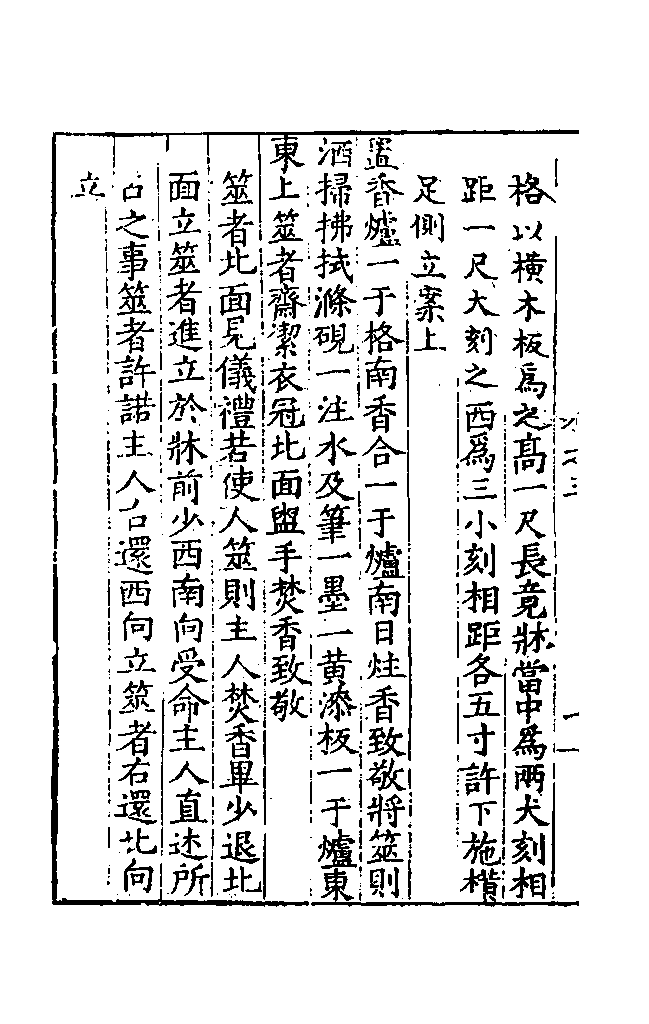 格以橫木板為之高一尺長竟牀當中為兩大刻相
距一尺大刻之西為三小刻相距各五寸許下施橫
足側立案上
置香爐一于格南香合一于爐南日炷香致敬將筮則
洒掃拂拭滌硯一注水及筆一墨一黃漆板一于爐東
東上筮者齋潔衣冠北面盥手焚香致敬
筮者北面見儀禮若使人筮則主人焚香畢少退北
面立筮者進立於牀前少西南向受命主人直述所
占之事筮者許諾主人右還西向立筮者右還北向
立